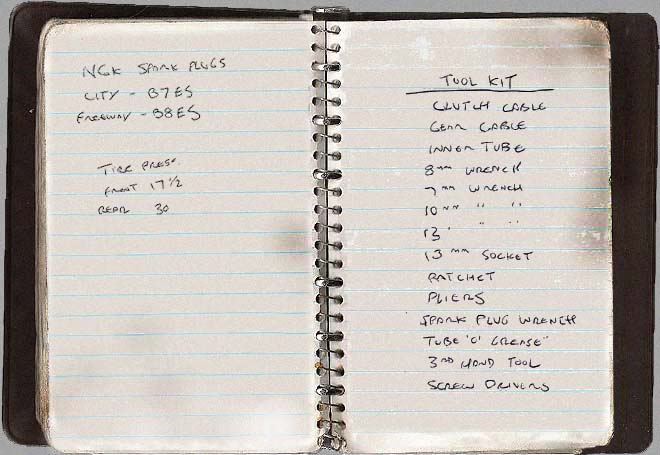 NGK SPARK PLUGS
CITY - B7ES
FREEWAY - B8ES
TIRE PRESS.
FRONT 17 1/2
REAR 30
TOOL KIT
CLUTCH CABLE
GEAR CABLE
INNER TUBE
8mm WRENCH
7mm WRENCH
10mm " "
13 " "
13mm SOCKET
RATCHET
PLIERS
SPARK PLUG WRENCH
TUBE 'O' GREASE"
3RD HAND TOOL
SCREW DRIVERS